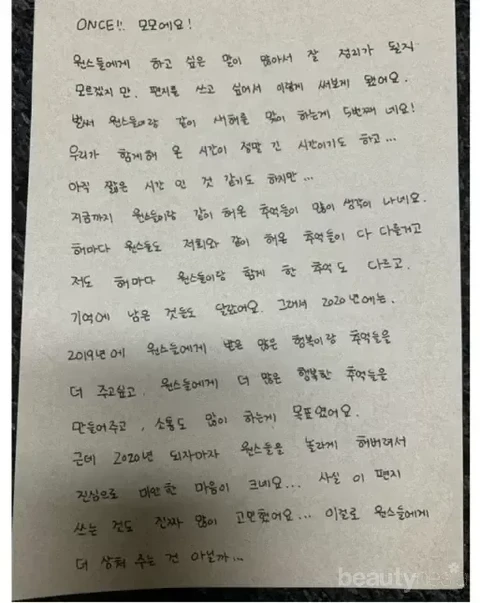 ONCE!! 모모에요!
원스들에게 하고 싶은 말이 많아서 잘 정리가 될지
모르겠지만. 편지를 쓰고 싶어서 이렇게 써보게 됐어요.
벌써 원스들이랑 같이 새해를 맞이 하는게 5번째 네요!
우리가 함께해 온 시간이 정말 긴 시간이기도 하고...
아직 짧은 시간 인 것 같기도 하지만...
지금까지 원스들이랑 같이 해온 추억들이 많이 생각이 나네요.
해마다 원스들도 저희와 같이 해온 추억들이 다 다를거고
저도 해마다 원스들이랑 함께 한 추억도 다르고.
기억에 남은 것들도 달랐어요. 그래서 2020년에는.
2019년에 원스들에게 받은 많은 행복이랑 추억들을
더 주고싶고. 원스들에게 더 많은 행복한 추억들을
만들어주고, 소통도 많이 하는게 목표였어요.
근데 2020년 되자마자 원스들을 놀라게 해버려서
진심으로 미안한 마음이 크네요... 사실 이 편지
쓰는 것도 진짜 많이 고민했어요... 이걸로 원스들에게
더 상처 주는 건 아닐까...
beauty